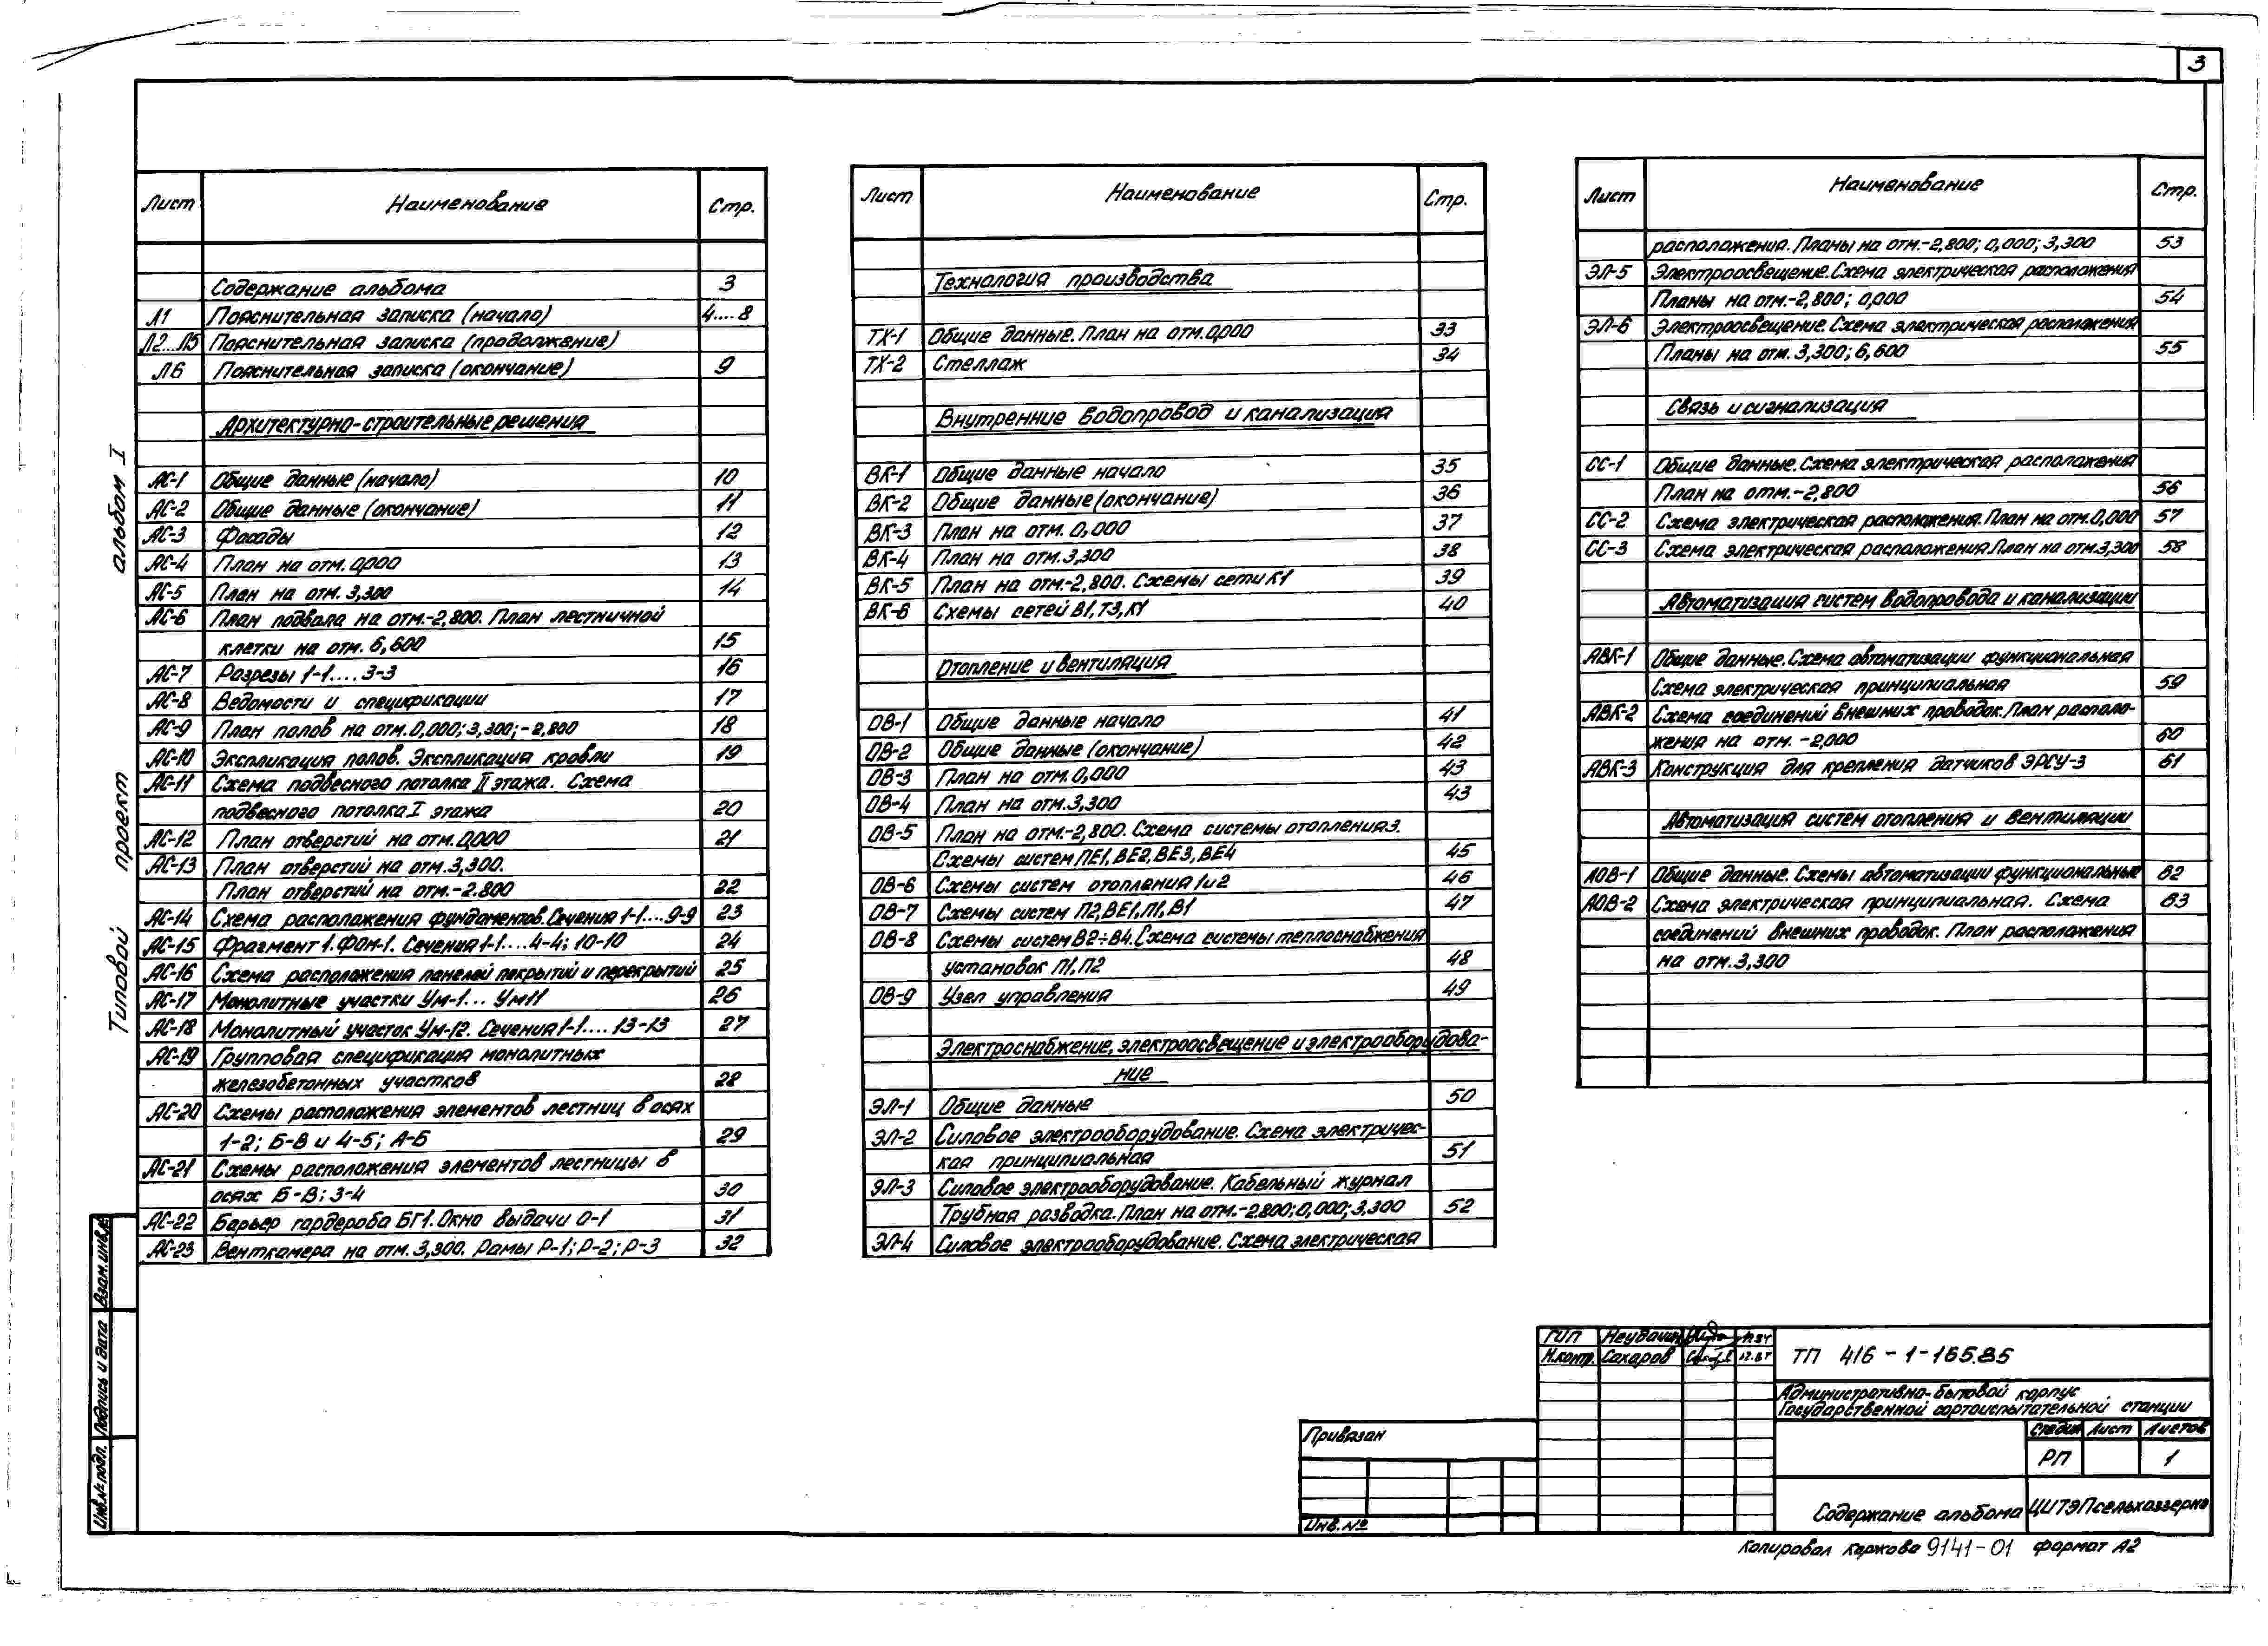 3
Лист Наименование Стр.
Содержание альбома 3
Л1 Пояснительная записка (начало) 4....8
Л2...Л5 Пояснительная записка (продолжение)
Л6 Пояснительная записка (окончание) 9
Архитектурно-строительные решения
АС-1 Общие данные (начало) 10
АС-2 Общие данные (окончание) 11
АС-3 Фасады 12
АС-4 План на отм. 0,000 13
АС-5 План на отм. 3,300 14
АС-6 План подвала на отм.-2,800. План лестничной
клетки на отм. 6,600 15
АС-7 Разрезы 1-1.... 3-3 16
АС-8 Ведомости и спецификации 17
АС-9 План полов на отм. 0,000; 3,300; -2,800 18
АС-10 Экспликация полов. Экспликация кровли 19
АС-11 Схема подвесного потолка II этажа. Схема
подвесного потолка I этажа 20
АС-12 План отверстий на отм. 0,000 21
АС-13 План отверстий на отм. 3,300.
План отверстий на отм. -2.800 22
АС-14 Схема расположения фундаментов. Сечения 1-1.... 9-9 23
АС-15 Фрагмент 1. ФОМ-1. Сечения 1-1.... 4-4; 10-10 24
АС-16 Схема расположения панелей покрытий и перекрытий 25
АС-17 Монолитные участки Ум-1... Ум11 26
АС-18 Монолитный участок Ум-12. Сечения 1-1.... 13-13 27
АС-19 Групповая спецификация монолитных
железобетонных участков 28
АС-20 Схемы расположения элементов лестниц в осях
1-2; Б-В и 4-5; А-Б 29
АС-21 Схемы расположения элементов лестницы в
осях Б-В; 3-4 30
АС-22 Барьер гардероба БГ1. Окно выдачи О-1 31
АС-23 Венткамера на отм. 3,300. Рамы Р-1; Р-2; Р-3 32
Лист Наименование Стр.
Технология производства
ТХ-1 Общие данные. План на отм. 0,000 33
ТХ-2 Стеллаж 34
Внутренние водопровод и канализация
ВК-1 Общие данные начало 35
ВК-2 Общие данные (окончание) 36
ВК-3 План на отм. 0,000 37
ВК-4 План на отм. 3,300 38
ВК-5 План на отм.-2,800. Схемы сети К1 39
ВК-6 Схемы сетей В1, Т3, К1 40
Отопление и вентиляция
ОВ-1 Общие данные начало 41
ОВ-2 Общие данные (окончание) 42
ОВ-3 План на отм. 0,000 43
ОВ-4 План на отм. 3,300 43
ОВ-5 План на отм.-2,800. Схема системы отопления 3.
Схемы систем ПЕ1, ВЕ2, ВЕ3, ВЕ4 45
ОВ-6 Схемы систем отопления 1 и 2 46
ОВ-7 Схемы систем П2, ВЕ1, П1, В1 47
ОВ-8 Схемы систем В2÷В4. Схема системы теплоснабжения
установок П1, П2 48
ОВ-9 Узел управления 49
Электроснабжение, электроосвещение и электрооборудова-
ние
ЭЛ-1 Общие данные 50
ЭЛ-2 Силовое электрооборудование. Схема электричес-
кая принципиальная 51
ЭЛ-3 Силовое электрооборудование. Кабельный журнал
Трубная разводка. План на отм.-2.800; 0,000; 3,300 52
ЭЛ-4 Силовое электрооборудование. Схема электрическая
Лист Наименование Стр.
расположения. Планы на отм.-2,800; 0,000; 3,300 53
ЭЛ-5 Электроосвещение. Схема электрическая расположения
Планы на отм.-2,800; 0,000 54
ЭЛ-6 Электроосвещение. Схема электрическая расположения
Планы на отм. 3,300; 6,600 55
Связь и сигнализация
СС-1 Общие данные. Схема электрическая расположения
План на отм. -2,800 56
СС-2 Схема электрическая расположения. План на отм. 0,000 57
СС-3 Схема электрическая расположения. План на отм. 3,300 58
Автоматизация систем водопровода и канализации
АВК-1 Общие данные. Схема автоматизации функциональная
Схема электрическая принципиальная 59
АВК-2 Схема соединений внешних проводок. План располо-
жения на отм. -2,000 60
АВК-3 Конструкция для крепления датчиков ЭРСУ-3 61
Автоматизация систем отопления и вентиляции
АОВ-1 Общие данные. Схемы автоматизации функциональные 62
АОВ-2 Схема электрическая принципиальная. Схема 63
соединений внешних проводок. План расположения
на отм. 3,300
Типовой проект альбом I
Инв.№ подл. Подпись и дата Взам.инв.№
ГИП Неудачин 11.84
Н.контр. Сахаров 12.84
ТП 416-1-165.85
Административно-бытовой корпус
Государственной сортоиспытательной станции
Стадия Лист Листов
РП 1
Привязан
Инв.№
Содержание альбома
ЦИТЭПсельхоззерно
Копировал Каржова 9141-01 формат А2